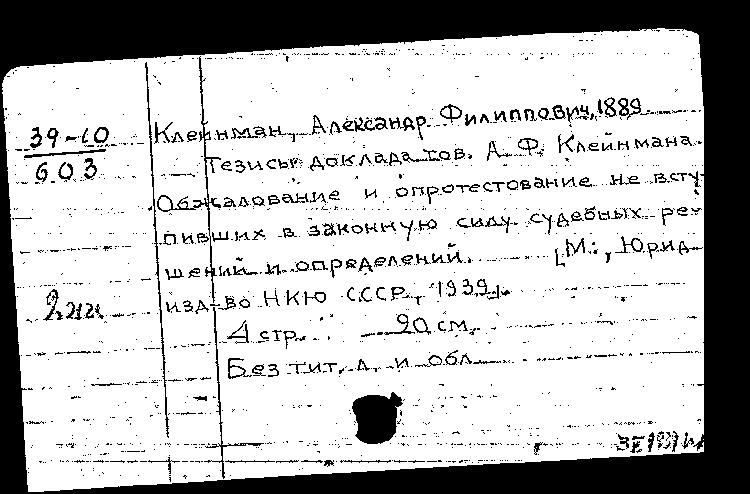 39-10
603
Клейнман, Александр Филиппович, 1889.
Тезисы доклада тов. А. Ф. Клейнмана.
Обжалование и опротестование не всту-
пивших в законную силу судебных ре-
шений и определений. [М., Юрид.
изд-во НКЮ СССР, 1939].
4 стр. 20 см.
Без тит. л. и обл.